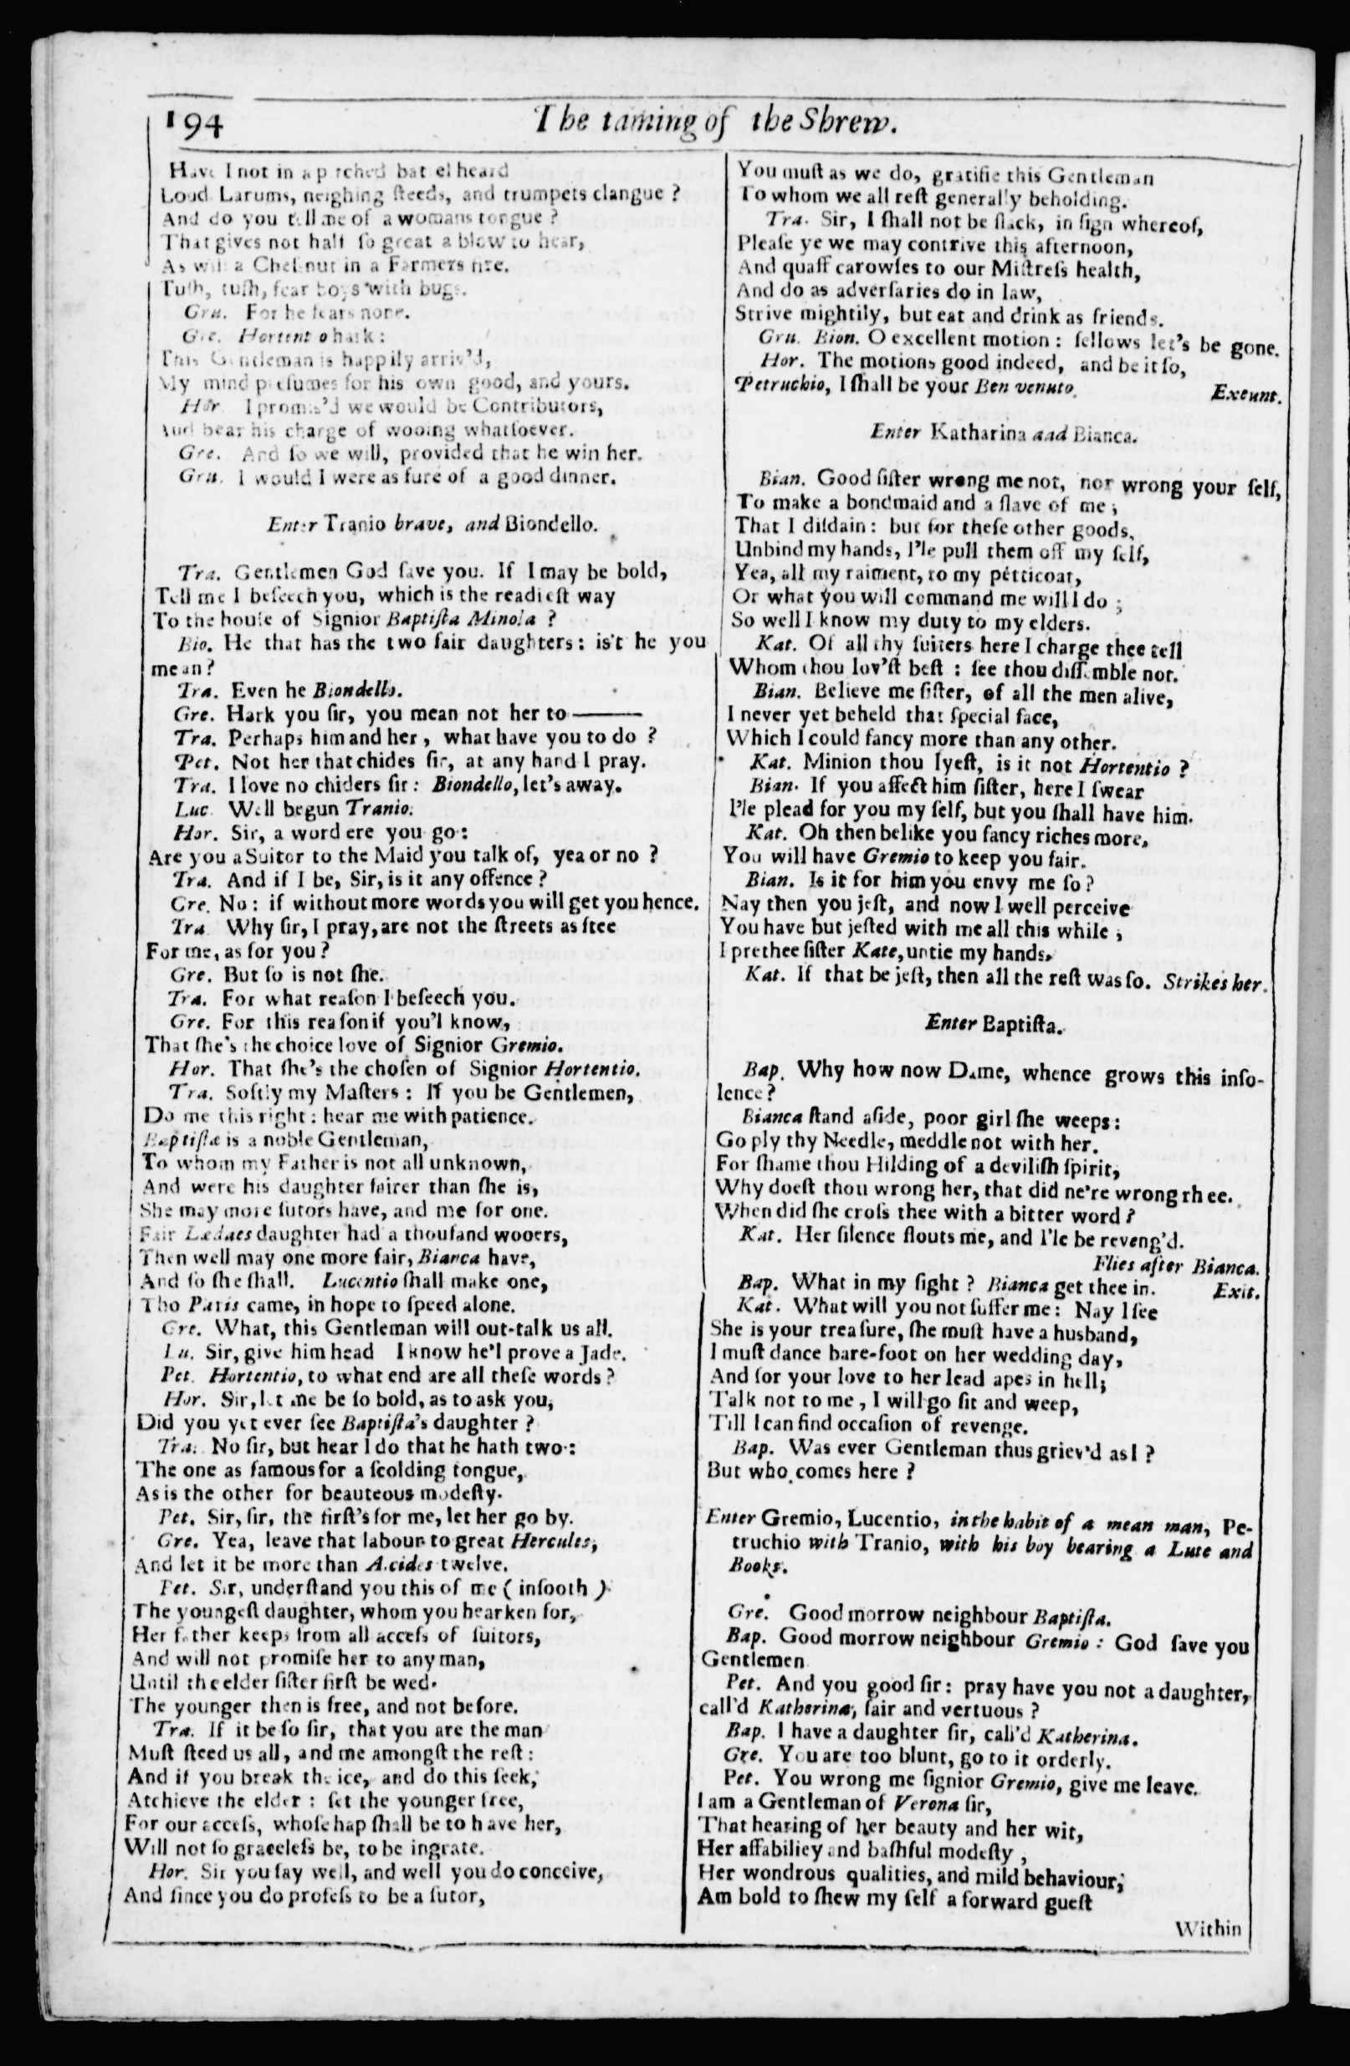 194
The taming of the Shrew.
Have I not in a pitched battel heard
Loud Larums, neighing ſteeds, and trumpets clangue ?
And do you tell me of a womans tongue ?
That gives not half ſo great a blow to hear,
As will a Cheſnut in a Farmers fire.
Tuſh, tuſh, fear boys with bugs.
Gru. For he fears none.
Gre. Hortentio hark :
This Gentleman is happily arriv'd,
My mind preſumes for his own good, and yours.
Hor. I promis'd we would be Contributors,
And bear his charge of wooing whatſoever.
Gre. And ſo we will, provided that he win her.
Gru. I would I were as ſure of a good dinner.
Enter Tranio brave, and Biondello.
Tra. Gentlemen God ſave you. If I may be bold,
Tell me I beſeech you, which is the readieſt way
To the houſe of Signior Baptiſta Minola ?
Bio. He that has the two fair daughters : is't he you
mean ?
Tra. Even he Biondello.
Gre. Hark you ſir, you mean not her to ———
Tra. Perhaps him and her, what have you to do ?
Pet. Not her that chides ſir, at any hand I pray.
Tra. I love no chiders ſir : Biondello, let's away.
Luc. Well begun Tranio.
Hor. Sir, a word ere you go :
Are you a Suitor to the Maid you talk of, yea or no ?
Tra. And if I be, Sir, is it any offence ?
Gre. No : if without more words you will get you hence.
Tra. Why ſir, I pray, are not the ſtreets as free
For me, as for you ?
Gre. But ſo is not ſhe.
Tra. For what reaſon I beſeech you.
Gre. For this reaſon if you'l know,
That ſhe's the choice love of Signior Gremio.
Hor. That ſhe's the choſen of Signior Hortentio.
Tra. Softly my Maſters : If you be Gentlemen,
Do me this right : hear me with patience.
Baptiſta is a noble Gentleman,
To whom my Father is not all unknown,
And were his daughter fairer than ſhe is,
She may more ſutors have, and me for one.
Fair Lædaes daughter had a thouſand wooers,
Then well may one more fair, Bianca have,
And ſo ſhe ſhall. Lucentio ſhall make one,
Tho Paris came, in hope to ſpeed alone.
Gre. What, this Gentleman will out-talk us all.
Lu. Sir, give him head I know he'l prove a Jade.
Pet. Hortentio, to what end are all theſe words ?
Hor. Sir, let me be ſo bold, as to ask you,
Did you yet ever ſee Baptiſta's daughter ?
Tra. No ſir, but hear I do that he hath two :
The one as famous for a ſcolding tongue,
As is the other for beauteous modeſty.
Pet. Sir, ſir, the firſt's for me, let her go by.
Gre. Yea, leave that labour to great Hercules,
And let it be more than Alcides twelve.
Pet. Sir, underſtand you this of me ( inſooth )
The youngeſt daughter, whom you hearken for,
Her father keeps from all acceſs of ſuitors,
And will not promiſe her to any man,
Until the elder ſiſter firſt be wed.
The younger then is free, and not before.
Tra. If it be ſo ſir, that you are the man
Muſt ſteed us all, and me amongſt the reſt :
And if you break the ice, and do this ſeek,
Atchieve the elder : ſet the younger free,
For our acceſs, whoſe hap ſhall be to have her,
Will not ſo graceleſs be, to be ingrate.
Hor. Sir you ſay well, and well you do conceive,
And ſince you do profeſs to be a ſutor,
You muſt as we do, gratifie this Gentleman
To whom we all reſt generally beholding.
Tra. Sir, I ſhall not be ſlack, in ſign whereof,
Pleaſe ye we may contrive this afternoon,
And quaff carowſes to our Miſtreſs health,
And do as adverſaries do in law,
Strive mightily, but eat and drink as friends.
Gru. Bion. O excellent motion : fellows let's be gone.
Hor. The motions good indeed, and be it ſo,
Petruchio, I ſhall be your Ben venuto.
Exeunt.
Enter Katharina aad Bianca.
Bian. Good ſiſter wrong me not, nor wrong your ſelf,
To make a bondmaid and a ſlave of me ;
That I diſdain : but for theſe other goods,
Unbind my hands, I'le pull them off my ſelf,
Yea, all my raiment, to my petticoat,
Or what you will command me will I do ;
So well I know my duty to my elders.
Kat. Of all thy ſuiters here I charge thee tell
Whom thou lov'ſt beſt : ſee thou diſſemble not.
Bian. Believe me ſiſter, of all the men alive,
I never yet beheld that ſpecial face,
Which I could fancy more than any other.
Kat. Minion thou lyeſt, is it not Hortentio ?
Bian. If you affect him ſiſter, here I ſwear
I'le plead for you my ſelf, but you ſhall have him.
Kat. Oh then belike you fancy riches more,
You will have Gremio to keep you fair.
Bian. Is it for him you envy me ſo ?
Nay then you jeſt, and now I well perceive
You have but jeſted with me all this while ;
I prethee ſiſter Kate, untie my hands.
Kat. If that be jeſt, then all the reſt was ſo. Strikes her.
Enter Baptiſta.
Bap. Why how now Dame, whence grows this inſo-
lence ?
Bianca ſtand aſide, poor girl ſhe weeps :
Go ply thy Needle, meddle not with her.
For ſhame thou Hilding of a deviliſh ſpirit,
Why doeſt thou wrong her, that did ne're wrong thee.
When did ſhe croſs thee with a bitter word ?
Kat. Her ſilence flouts me, and I'le be reveng'd.
Flies after Bianca.
Bap. What in my ſight ? Bianca get thee in. Exit.
Kat. What will you not ſuffer me : Nay I ſee
She is your treaſure, ſhe muſt have a husband,
I muſt dance bare-foot on her wedding day,
And for your love to her lead apes in hell ;
Talk not to me, I will go ſit and weep,
Till I can find occaſion of revenge.
Bap. Was ever Gentleman thus griev'd as I ?
But who comes here ?
Enter Gremio, Lucentio, in the habit of a mean man, Pe-
truchio with Tranio, with his boy bearing a Lute and
Books.
Gre. Good morrow neighbour Baptiſta.
Bap. Good morrow neighbour Gremio : God ſave you
Gentlemen.
Pet. And you good ſir : pray have you not a daughter,
call'd Katherina, fair and vertuous ?
Bap. I have a daughter ſir, call'd Katherina.
Gre. You are too blunt, go to it orderly.
Pet. You wrong me ſignior Gremio, give me leave.
I am a Gentleman of Verona ſir,
That hearing of her beauty and her wit,
Her affability and baſhful modeſty,
Her wondrous qualities, and mild behaviour,
Am bold to ſhew my ſelf a forward gueſt
Within